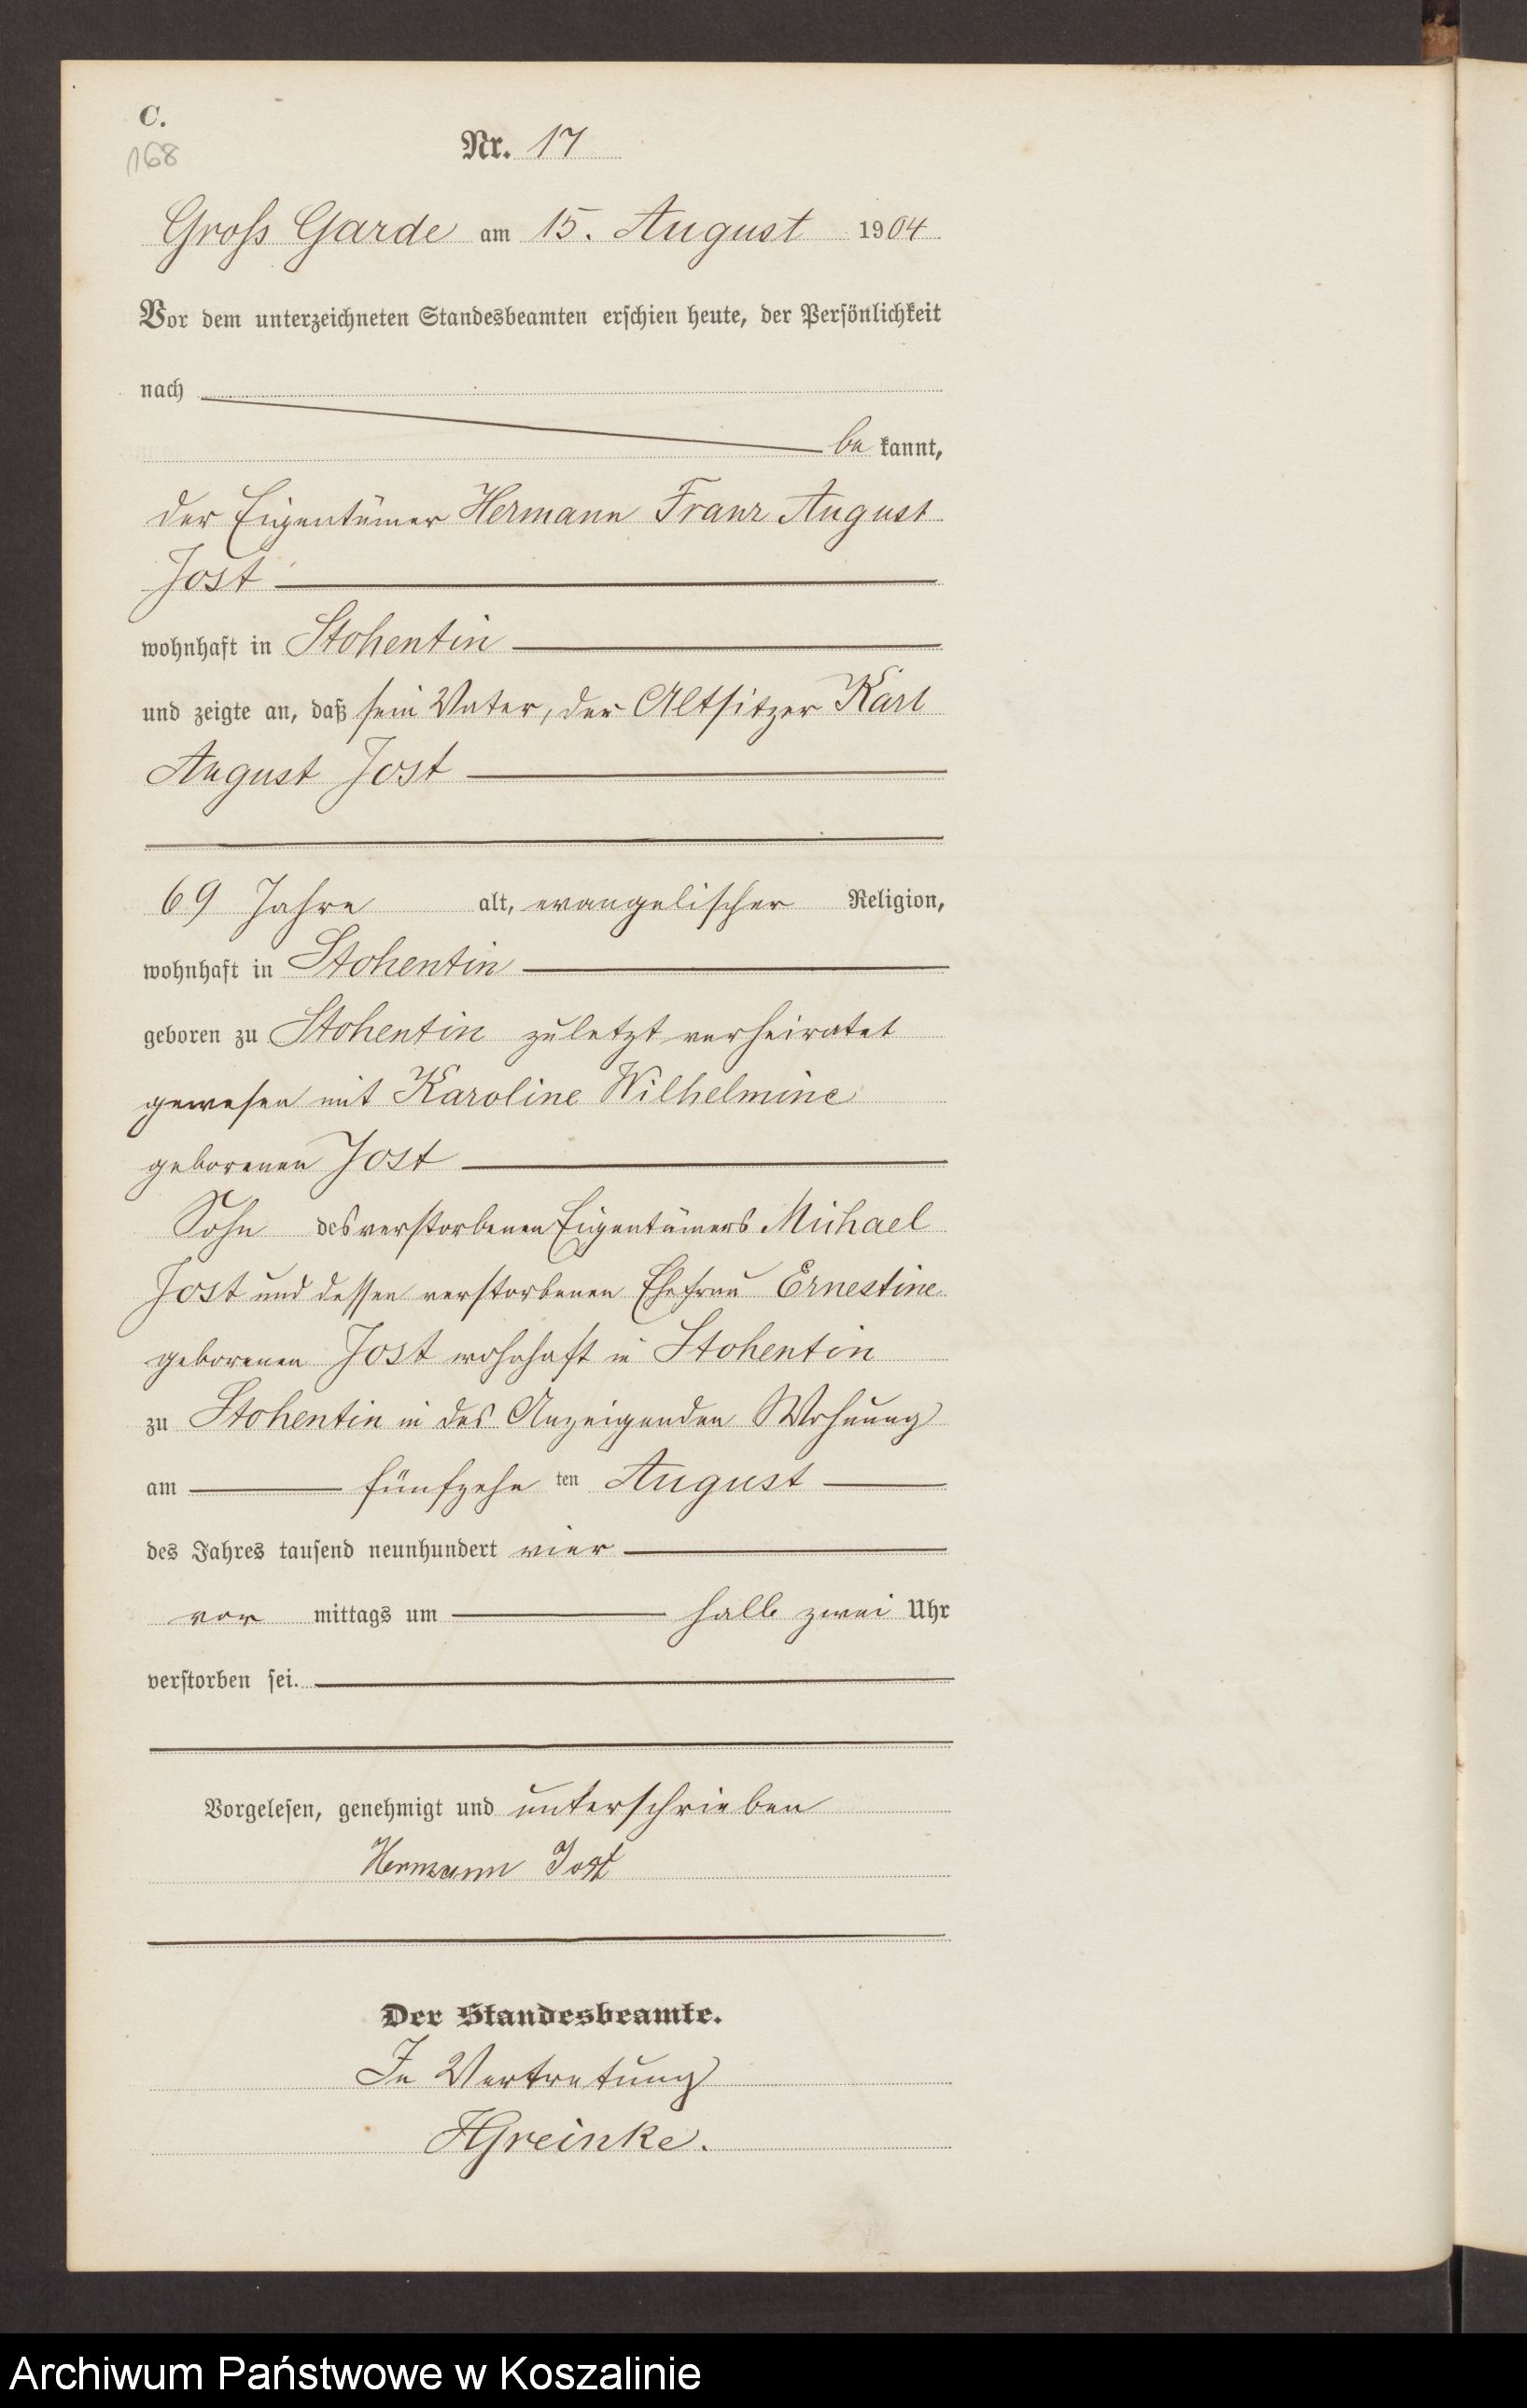 C.
168
Nr. 17
Gross Garde am 15. August 1904
Vor dem unterzeichneten Standesbeamten erschien heute, der Persönlichkeit
nach
be kannt,
der Eigentümer Hermann Franz August
Jost
wohnhaft in Stohentin
und zeigte an, daß sein Vater, der Altsitzer Karl
August Jost
69 Jahre alt, evangelischer Religion,
wohnhaft in Stohentin
geboren zu Stohentin zuletzt verheiratet
gewesen mit Karoline Wilhelmine
geborenen Jost
Sohn des verstorbenen Eigentümers Michael
Jost und dessen verstorbenen Ehefrau Ernestine
geborenen Jost wohnhaft in Stohentin
zu Stohentin in des Anzeigenden Wohnung
am fünfzehn ten August
des Jahres tausend neunhundert vier
vor mittags um halb zwei Uhr
verstorben sei.
Vorgelesen, genehmigt und unterschrieben
Hermann Jost
Der Standesbeamte.
In Vertretung
HGreinke.
Archiwum Państwowe w Koszalinie